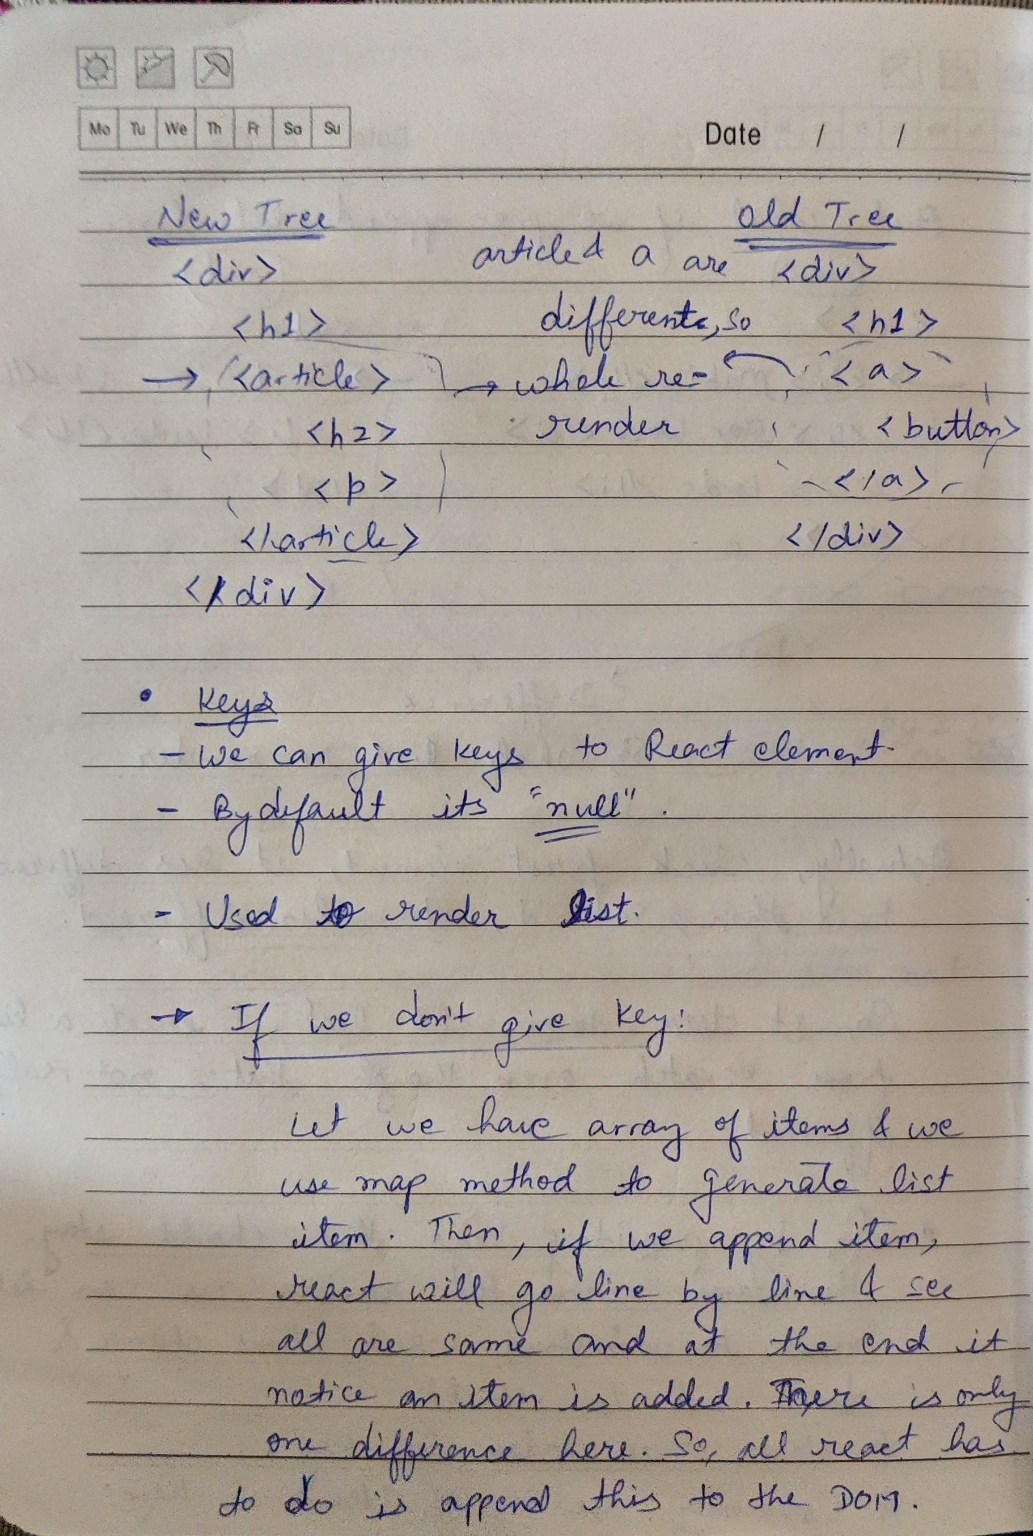 Mo Tu We Th Fr Sa Su
Date / /
New Tree
Old Tree
<div>
article & a are
<div>
<h1>
different, so
<h1>
→ <article>
→ whole re-
<a>
<h2>
render
<button>
<p>
</a>
</article>
</div>
</div>
• Keys
- We can give keys to React element.
- By default its "null".
- Used to render list.
→ If we don't give key:
Let we have array of items & we
use map method to generate list
item. Then, if we append item,
react will go line by line & see
all are same and at the end it
notice an item is added. There is only
one difference here. So, all react has
to do is append this to the DOM.